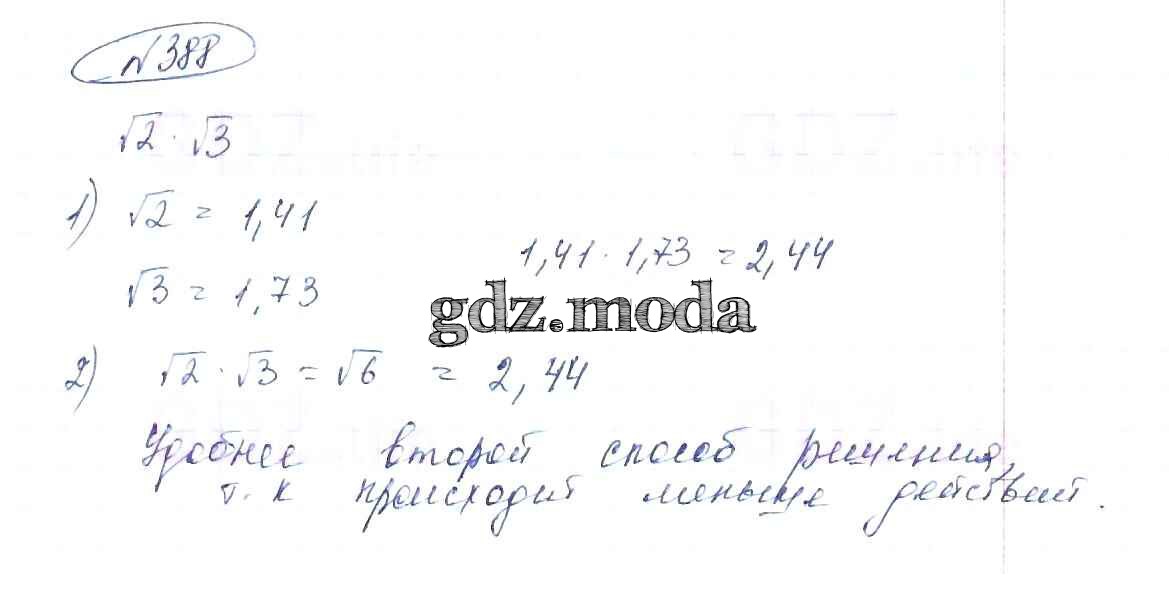 №388
√2 · √3
1) √2 = 1,41
1,41 · 1,73 = 2,44
√3 = 1,73
gdz.moda
2) √2 · √3 = √6 = 2,44
Удобнее второй способ решения,
т.к происходит меньше действий.